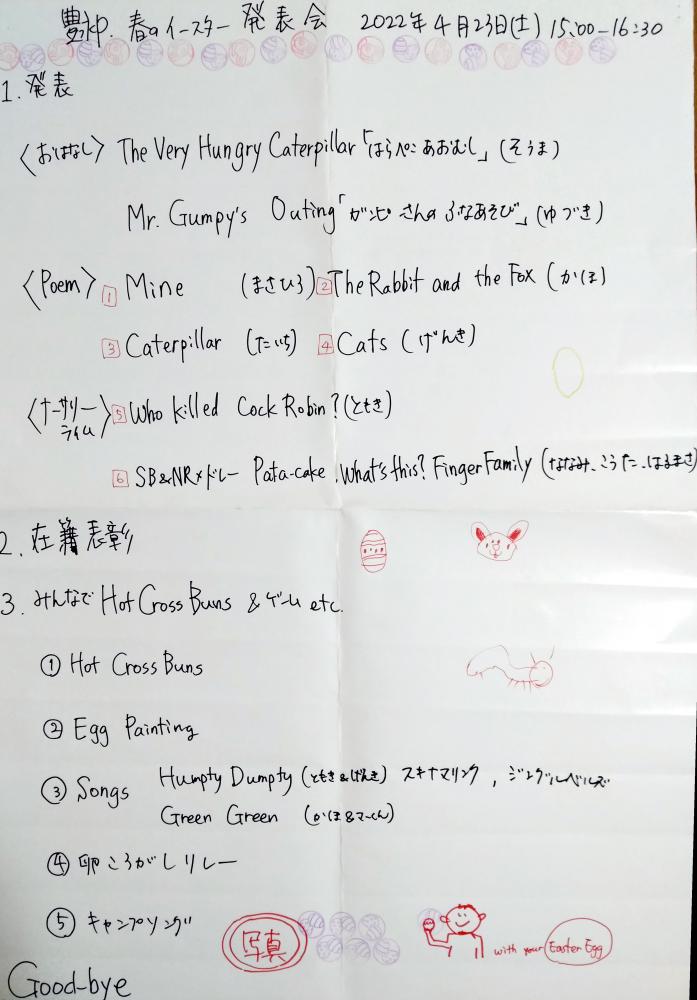 豊神. 春のイースター 発表会 2022年4月23日(土) 15:00-16:30
1. 発表
〈おはなし〉 The Very Hungry Caterpillar「はらぺこあおむし」(そうま)
Mr. Gumpy's Outing「ガンピーさんのふなあそび」(ゆづき)
〈Poem〉 1 Mine (まさひろ) 2 The Rabbit and the Fox (かほ)
3 Caterpillar (たいち) 4 Cats (げんき)
〈ナーサリーライム〉 5 Who killed Cock Robin? (ともき)
6 SB&NRメドレー Pata-cake. What's this? Finger Family (ななみ、こうた、はるまさ)
2. 在籍表彰
3. みんなで Hot Cross Buns & ゲーム etc.
① Hot Cross Buns
② Egg Painting
③ Songs Humpty Dumpty (ともき&げんき) スキナマリンク, ジングルベルズ
Green Green (かほ&マーくん)
④ 卵ころがしリレー
⑤ キャンプソング
写真
with your Easter Egg
Good-bye